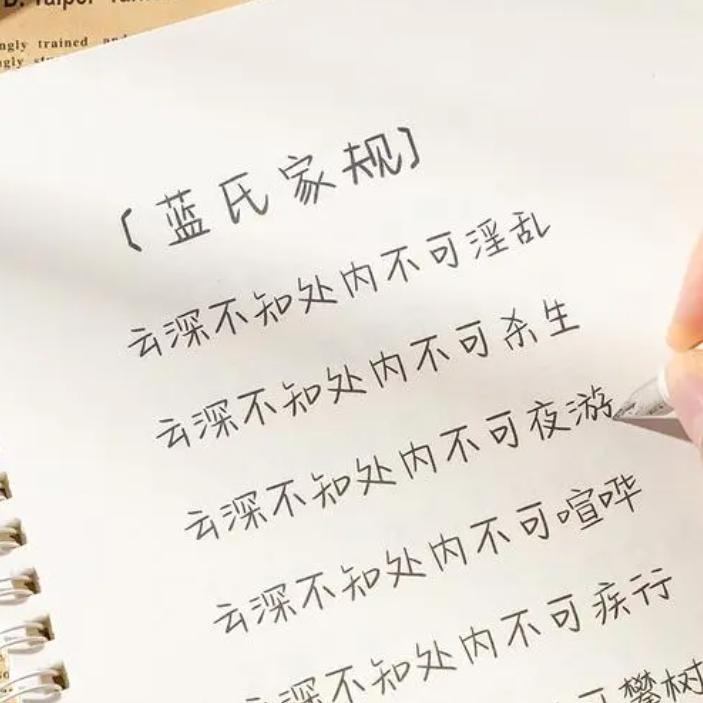 ngly trained
ngly
〔蓝氏家规〕
云深不知处内不可淫乱
云深不知处内不可杀生
云深不知处内不可夜游
云深不知处内不可喧哗
云深不知处内不可疾行
可攀树